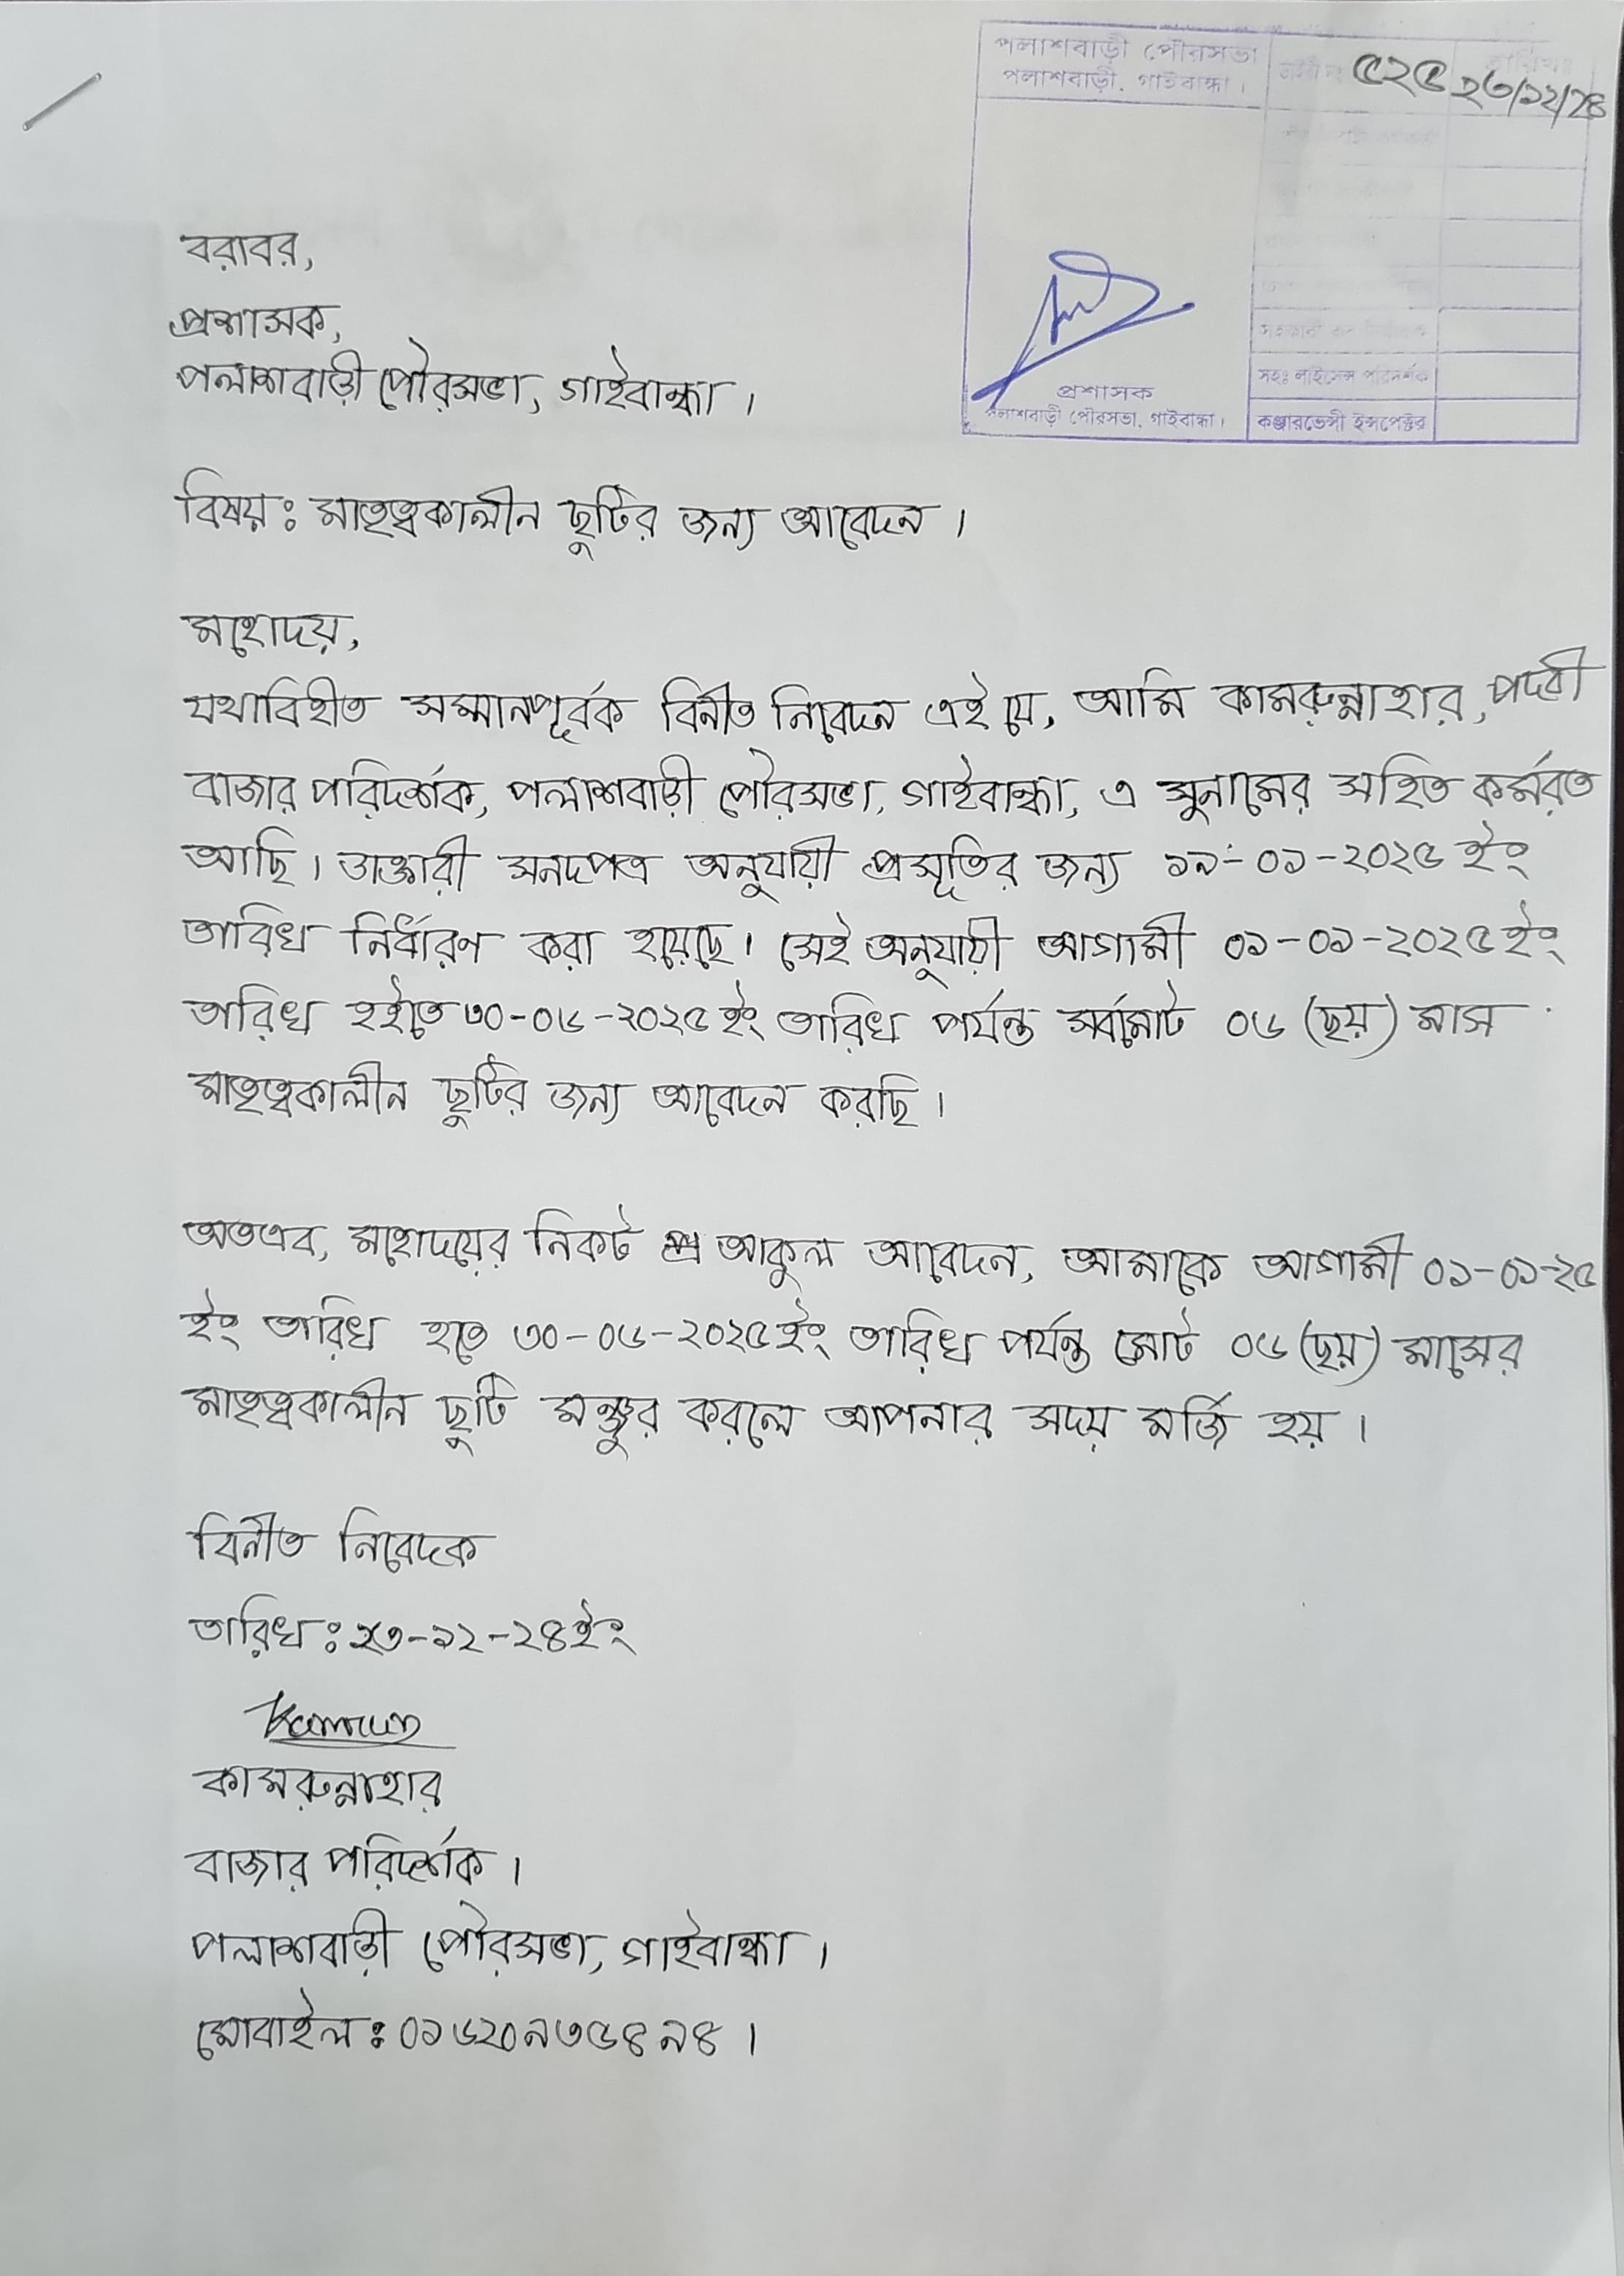 পলাশবাড়ী পৌরসভা
পলাশবাড়ী, গাইবান্ধা।
৫২৫
২৩/১২/২৪
সহঃ লাইসেন্স পরিদর্শক
কঞ্জারভেন্সী ইন্সপেক্টর
প্রশাসক
পলাশবাড়ী পৌরসভা, গাইবান্ধা।
বরাবর,
প্রশাসক,
পলাশবাড়ী পৌরসভা, গাইবান্ধা।
বিষয়ঃ মাতৃত্বকালীন ছুটির জন্য আবেদন।
মহোদয়,
যথাবিহীত সম্মানপূর্বক বিনীত নিবেদন এই যে, আমি কামরুন্নাহার, পদবী
বাজার পরিদর্শক, পলাশবাড়ী পৌরসভা, গাইবান্ধা, এ সুনামের সহিত কর্মরত
আছি। ডাক্তারী সনদপত্র অনুযায়ী প্রসূতির জন্য ১৯-০১-২০২৫ ইং
তারিখ নির্ধারণ করা হয়েছে। সেই অনুযায়ী আগামী ০১-০১-২০২৫ ইং
তারিখ হইতে ৩০-০৬-২০২৫ ইং তারিখ পর্যন্ত সর্বমোট ০৬ (ছয়) মাস
মাতৃত্বকালীন ছুটির জন্য আবেদন করছি।
অতএব, মহোদয়ের নিকট আকুল আবেদন, আমাকে আগামী ০১-০১-২৫
ইং তারিখ হতে ৩০-০৬-২০২৫ ইং তারিখ পর্যন্ত মোট ০৬ (ছয়) মাসের
মাতৃত্বকালীন ছুটি মঞ্জুর করলে আপনার সদয় মর্জি হয়।
বিনীত নিবেদক
তারিখঃ ২৩-১২-২৪ ইং
Kamrun
কামরুন্নাহার
বাজার পরিদর্শক।
পলাশবাড়ী পৌরসভা, গাইবান্ধা।
মোবাইলঃ ০১৬২০৭৩৫৪৭৪।